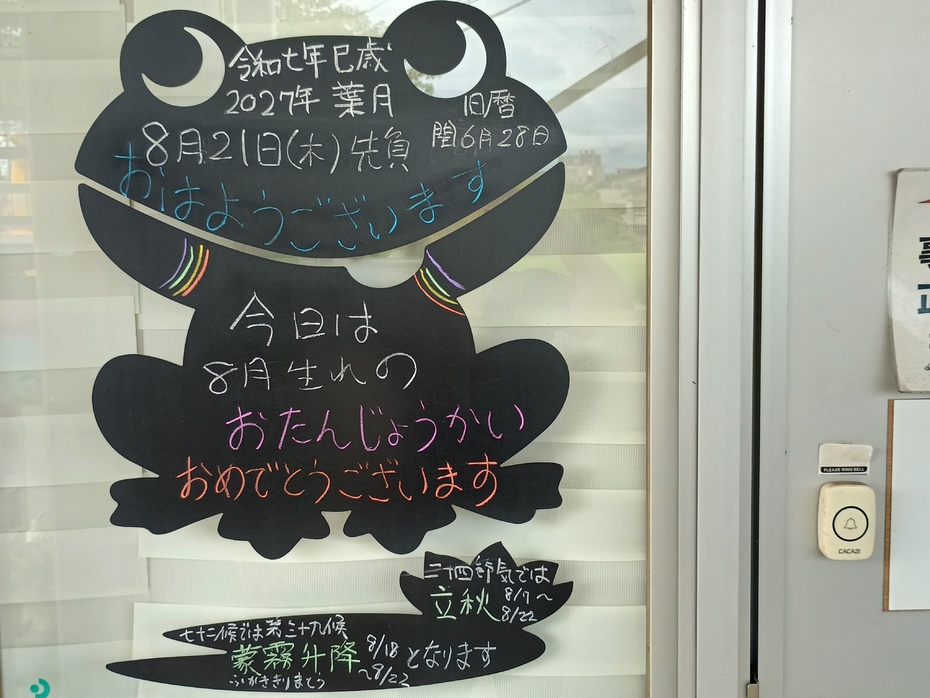 令和七年巳歳
2027年 葉月
旧暦
閏6月28日
8月21日(木)先負
おはようございます
今日は
8月生れの
おたんじょうかい
おめでとうございます
二十四節気では
立秋 8/7〜
8/22
七十二候では第三十九候
蒙霧升降 8/18
〜8/22
となります
ふかききりまとう
PLEASE RING BELL
CACAZI